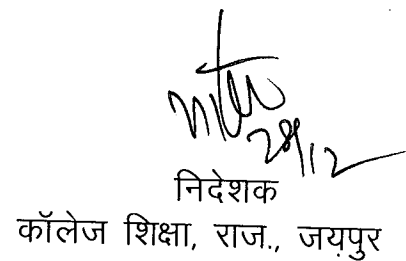 28/12
निदेशक
कॉलेज शिक्षा, राज., जयपुर